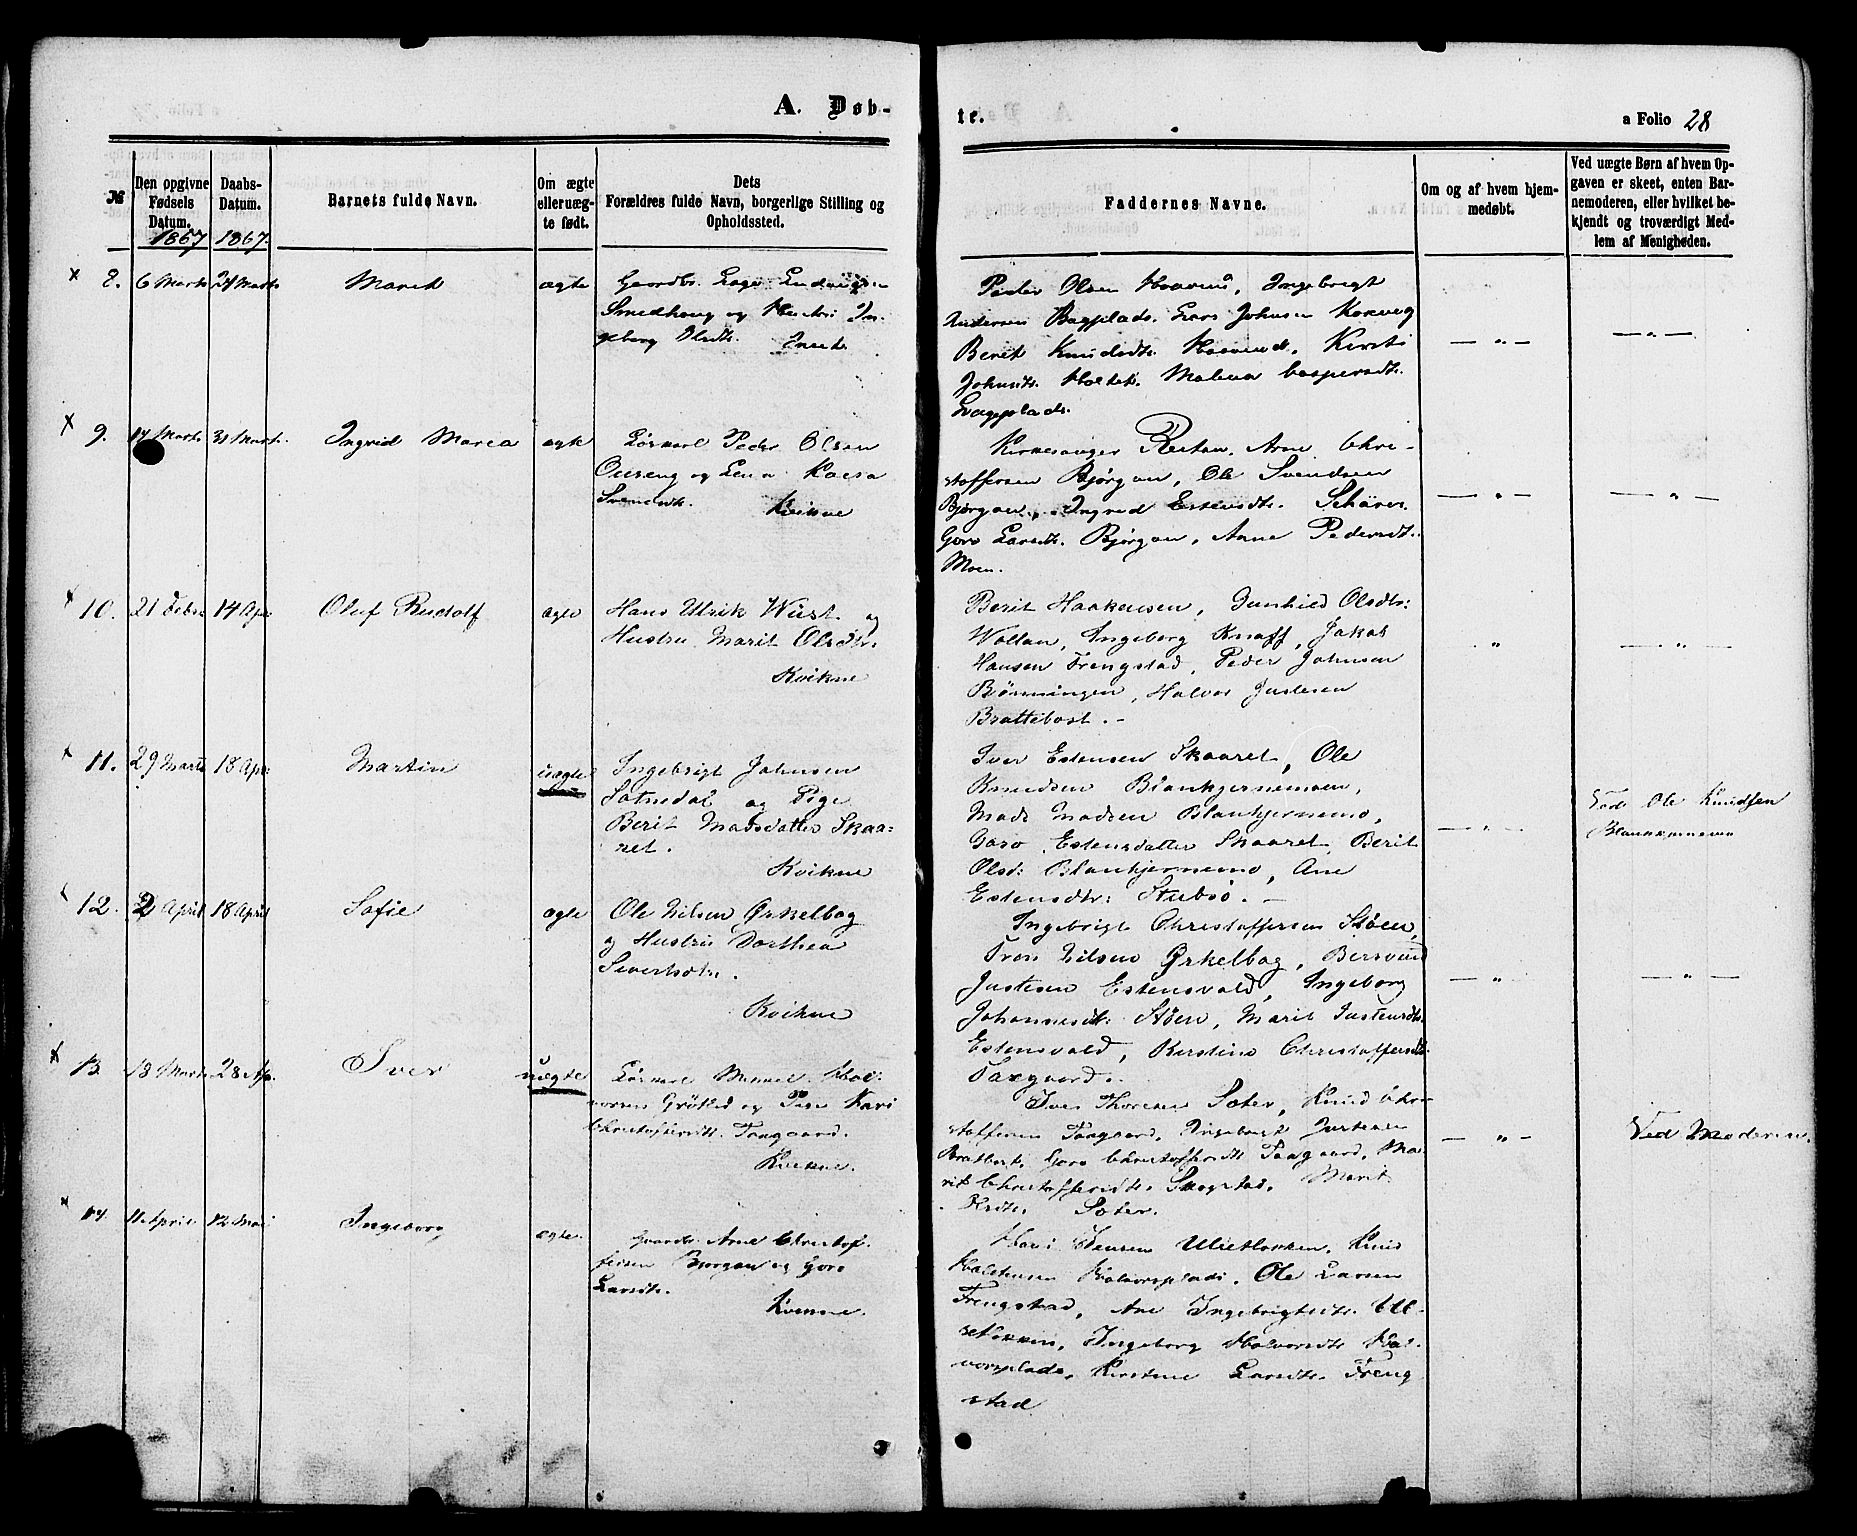 A. Døb-
te.
a Folio 28
№
Den opgivne
Fødsels
Datum.
1867
Daabs-
Datum.
1867.
Barnets fulde Navn.
Om ægte
eller uæg-
te født.
Dets
Forældres fulde Navn, borgerlige Stilling og
Opholdssted.
Faddernes Navne.
Om og af hvem hjem-
medøbt.
Ved uægte Børn af hvem Op-
gaven er skeet, enten Bar-
nemoderen, eller hvilket be-
kjendt og troværdigt Med-
lem af Menigheden.
8. 6 Marts Marts Marit ægte
Smedhaug og Hustri In-
geborg Olsdtr. Inset.
Peder Olsen Ingebrigt
Andersen Bagplads. Lars Johnsen
Berit Knudsdtr. Kirsti
Johnsdtr. Malena
9. Marts. 31 Marts. Ingrid Maria ægte
Løskarl Peder Olsen
og Lena Kaisa
Svensdtr. Kvikne
Kirkesanger Arne Chri-
stoffersen Bjørgan, Ole Svendsen
Bjørgan, Ingrid Estensdtr.
Goro Larsdtr. Bjørgan, Anne Pedersdt.
Moen.
10. 21 Febr 14 Apr Oluf Rudolf ægte
Hans Ulrik Wüst og
Hustru Marit Olsdtr.
Kvikne
Berit Haakensen, Gunhild Olsdtr:
Wollan, Ingeborg Knoff, Jakob
Hansen Frengstad, Peder Johnsen
Halvor Justesen
Brattebost. -
11. 29 Marts 18 Apr. Martin uægte
Ingebrigt Johnsen
Sotnedal og Pige
Berit Madsdatter Skaa-
ret.
Kvikne
Iver Estensen Skaaret, Ole
Knudsen Blankjernemoen,
Mads Madsen Blankjernemo,
Goro Estensdatter Skaaret, Berit
Olsd: Blankjernemo, Ane
Estensdtr: Stubsø. -
Ved Ole Knudsen
12. 2 April 18 April Sofie ægte
Ole Nilsen Ørkelbog
og Hustru Dorthea
Sivertsdtr.
Kvikne
Ingebrigt Christoffersen Støen,
Tron Nilsen Ørkelbog, Bersvend
Justesen Estensvold, Ingeborg
Johannesdt: Støen, Marit Justensdtr.
Estensvold, Kirstine Christoffersdt.
13 18 Marts 28 Ap. Iver uægte
Løskarl Hal-
vorsen og Pige Kari
Christoffersdt. Taagaard.
Kvikne.
Iver Thoresen Knud Chri-
stoffersen Taagaard, Ingebrigt Justesen
Goro Christoffersdtr Taagaard, Ma-
rit Christoffersdtr. Marit
Ved Moderen.
14. 11 April. 12 Mai Ingeborg ægte.
Gaardbr. Arne Christof-
fersen Bjørgan og Goro
Larsdtr.
Kvikne.
Jensen Knud
Halvorsplads. Ole Larsen
Frengstad, Ane Ingebrigtsdtr. Ul-
Ingeborg Halvorsdtr Hal-
vorsplads, Kirstine Larsdtr. Freng
stad